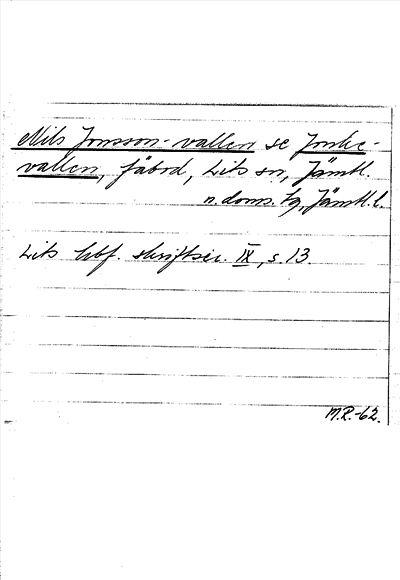 Nils Jonsson-vallen se Jonke-
vallen, fäbod, Lits sn, Jämtl.
n. doms. tg, Jämtl. l.
Lits hbf. skriftser. IX, s. 13.
M.R.-62.